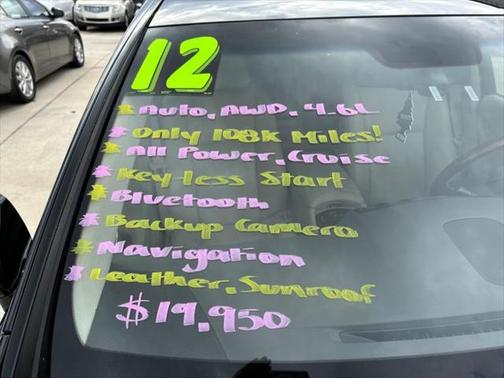 12
* Auto, AWD, 4.6L
* Only 108K Miles!
* All Power, Cruise
* Key less Start
* Bluetooth
* Backup Camera
* Navigation
* Leather, Sunroof
$19,950